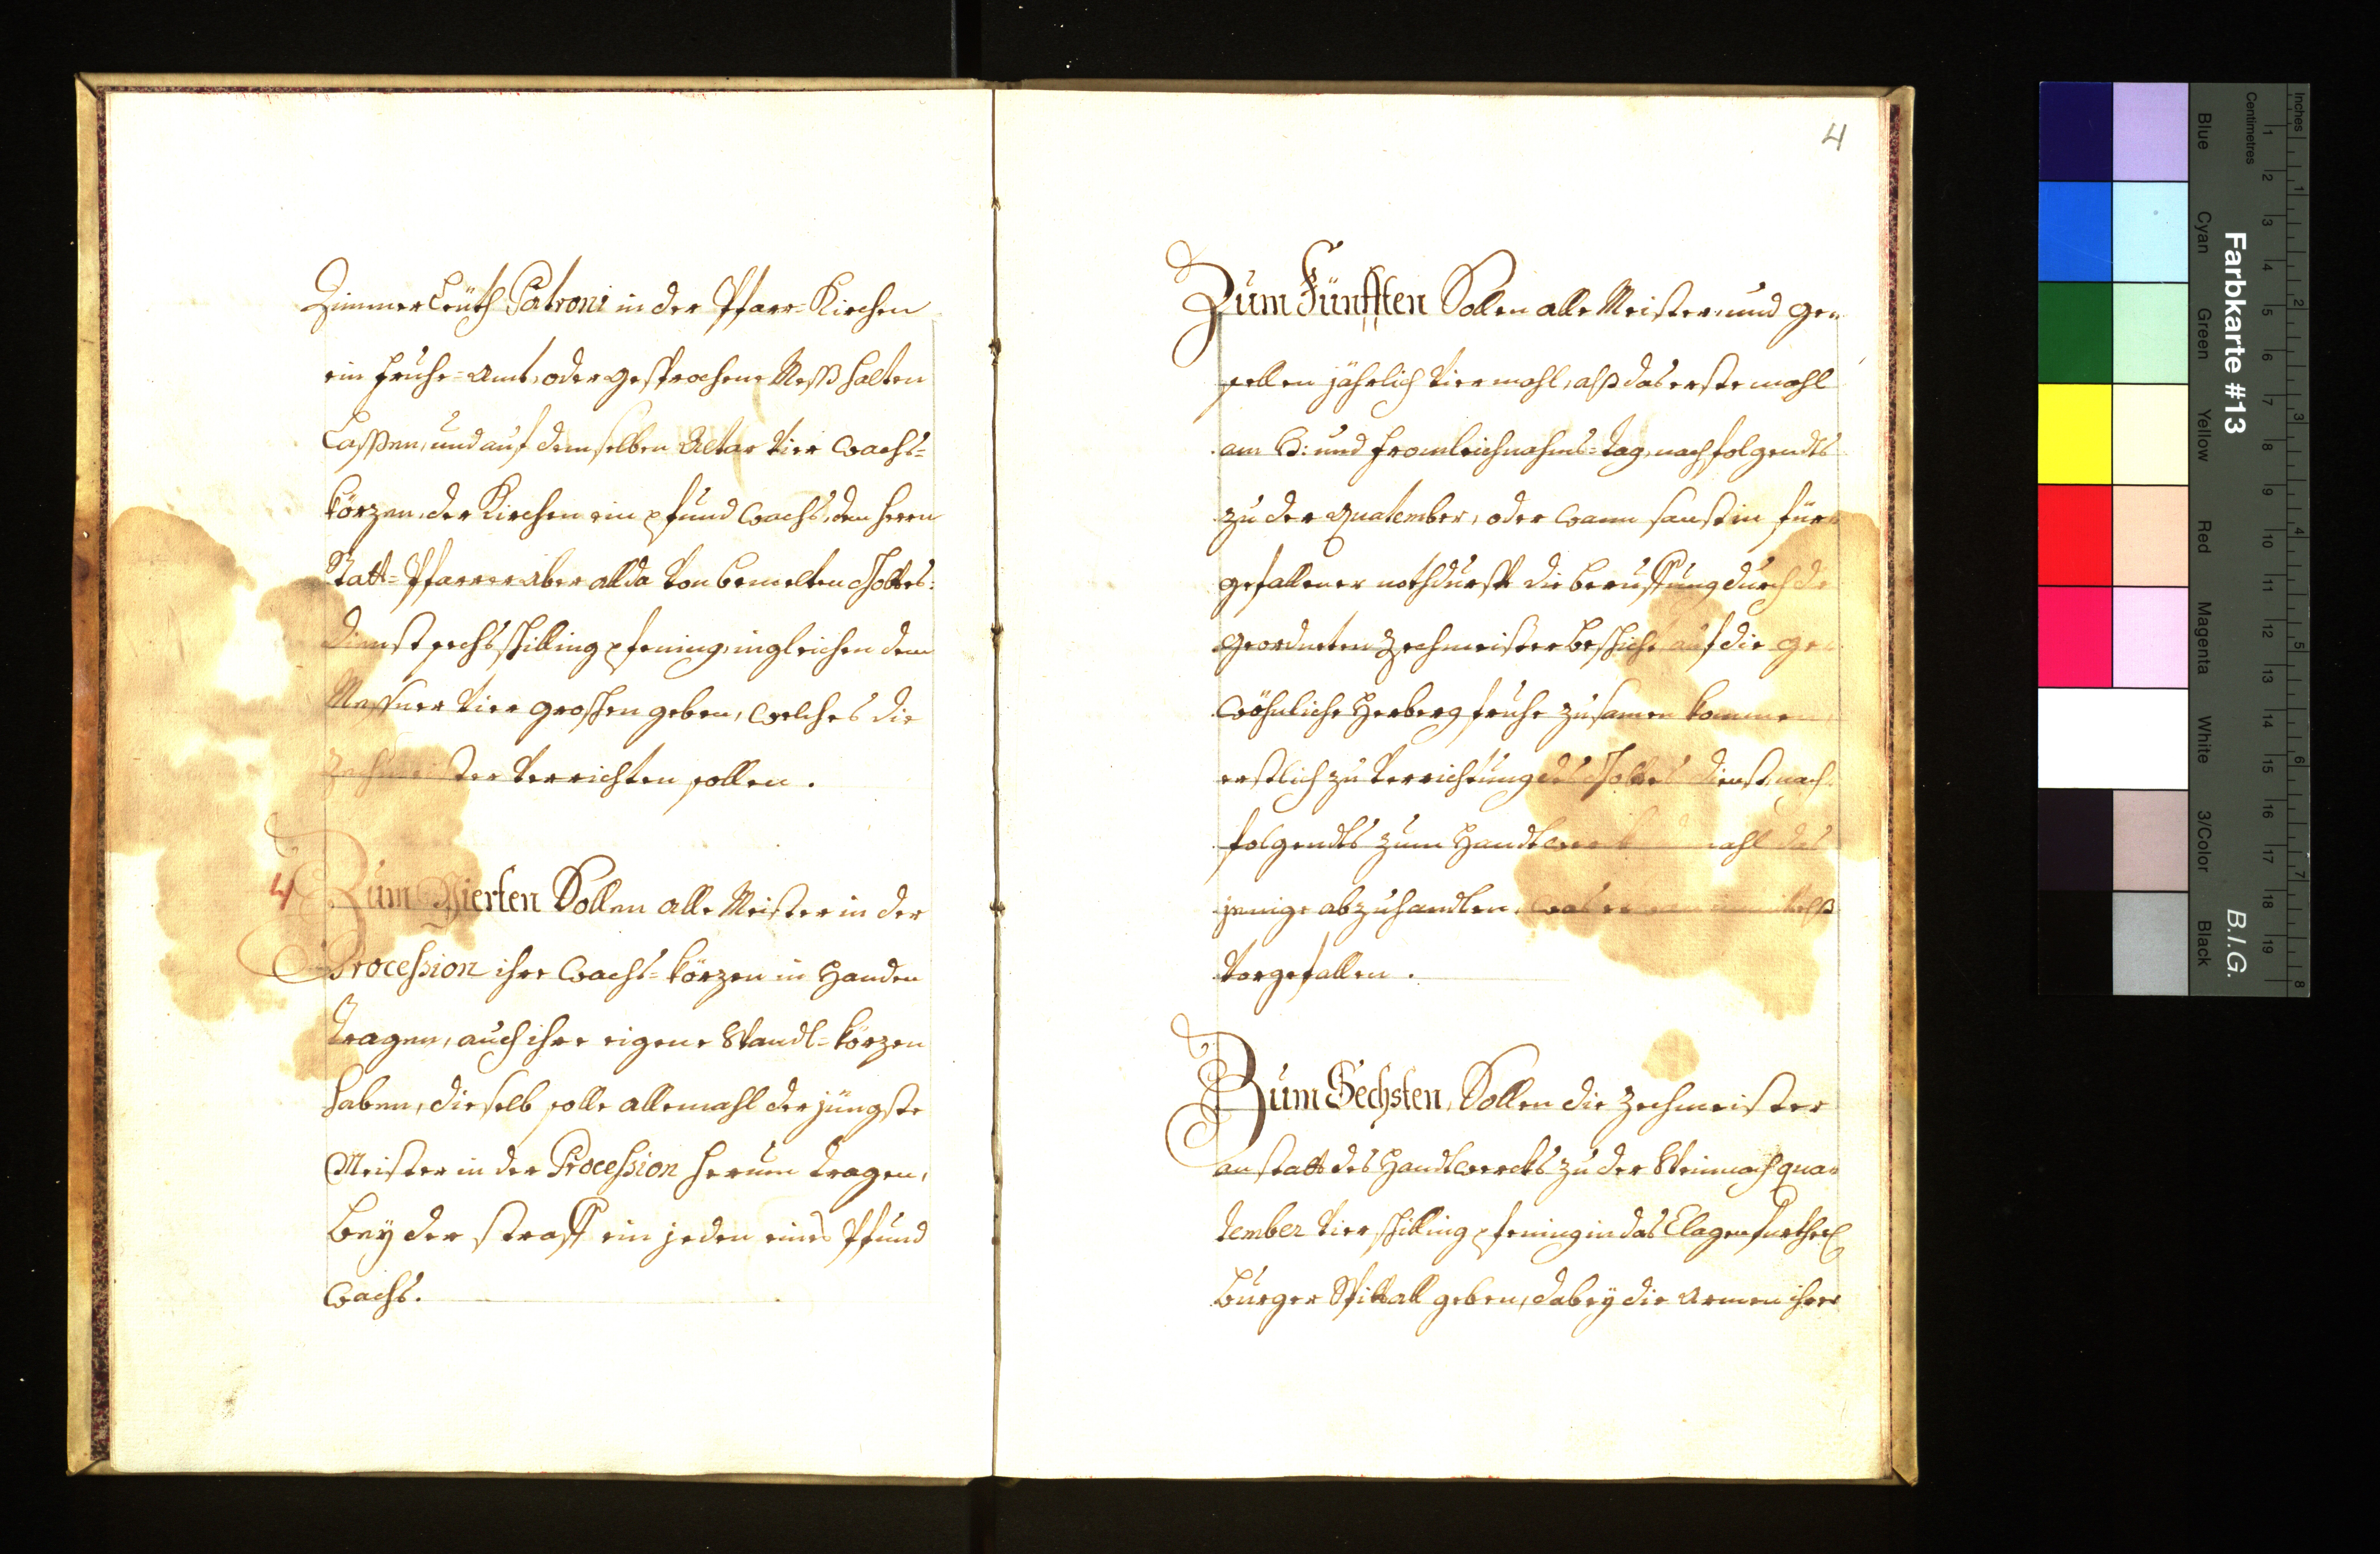 Zimmerleüth Patroni in der Pfarr-Kirchen
ein fruhe-Amt, oder gesprochene Meß halten
Laßen, und auf demselben Altar vier Wachs-
körzen, der Kirchen ein pfund Wachs, dem herrn
Statt-Pfarrer aber allda von bemelten Gottes-
dienst sechs schilling pfening, ingleichen dem
Messner vier groschen geben, welches die
Zechmeister verrichten sollen.
4 Zum Vierten Sollen alle Meister in der
Procession ihre Wachs-körzen in Handen
tragen, auch ihre eigene Wandl-körzen
haben, dieselb solle allemahl der jüngste
Meister in der Procession herum tragen,
bey der straff ein jeden eines Pfund
Wachs.
4
Zum Fünfften Sollen alle Meister und ge-
sellen jährlich viermahl, alß das erste mahl
am G: und fromleichnahms-tag, nachfolgendts
zu der Quatember, oder wann sonst in für-
gefallener nothdurfft die beruffung durch die
geordneten Zechmeister beschicht, auf die ge-
wöhnliche Herberg fruhe zusamen kommen,
erstlich zu verrichtung des Gottes dienst, nach-
folgendts zum Handtwerk das
jenige abzuhandlen, was
vorgefallen.
Zum Sechsten, Sollen die Zechmeister
anstatt des Handtwercks zu der Weinnacht qua-
tember vier schilling pfening in das Clagenfurther
burger Spittall geben, dabey die Armen ihre